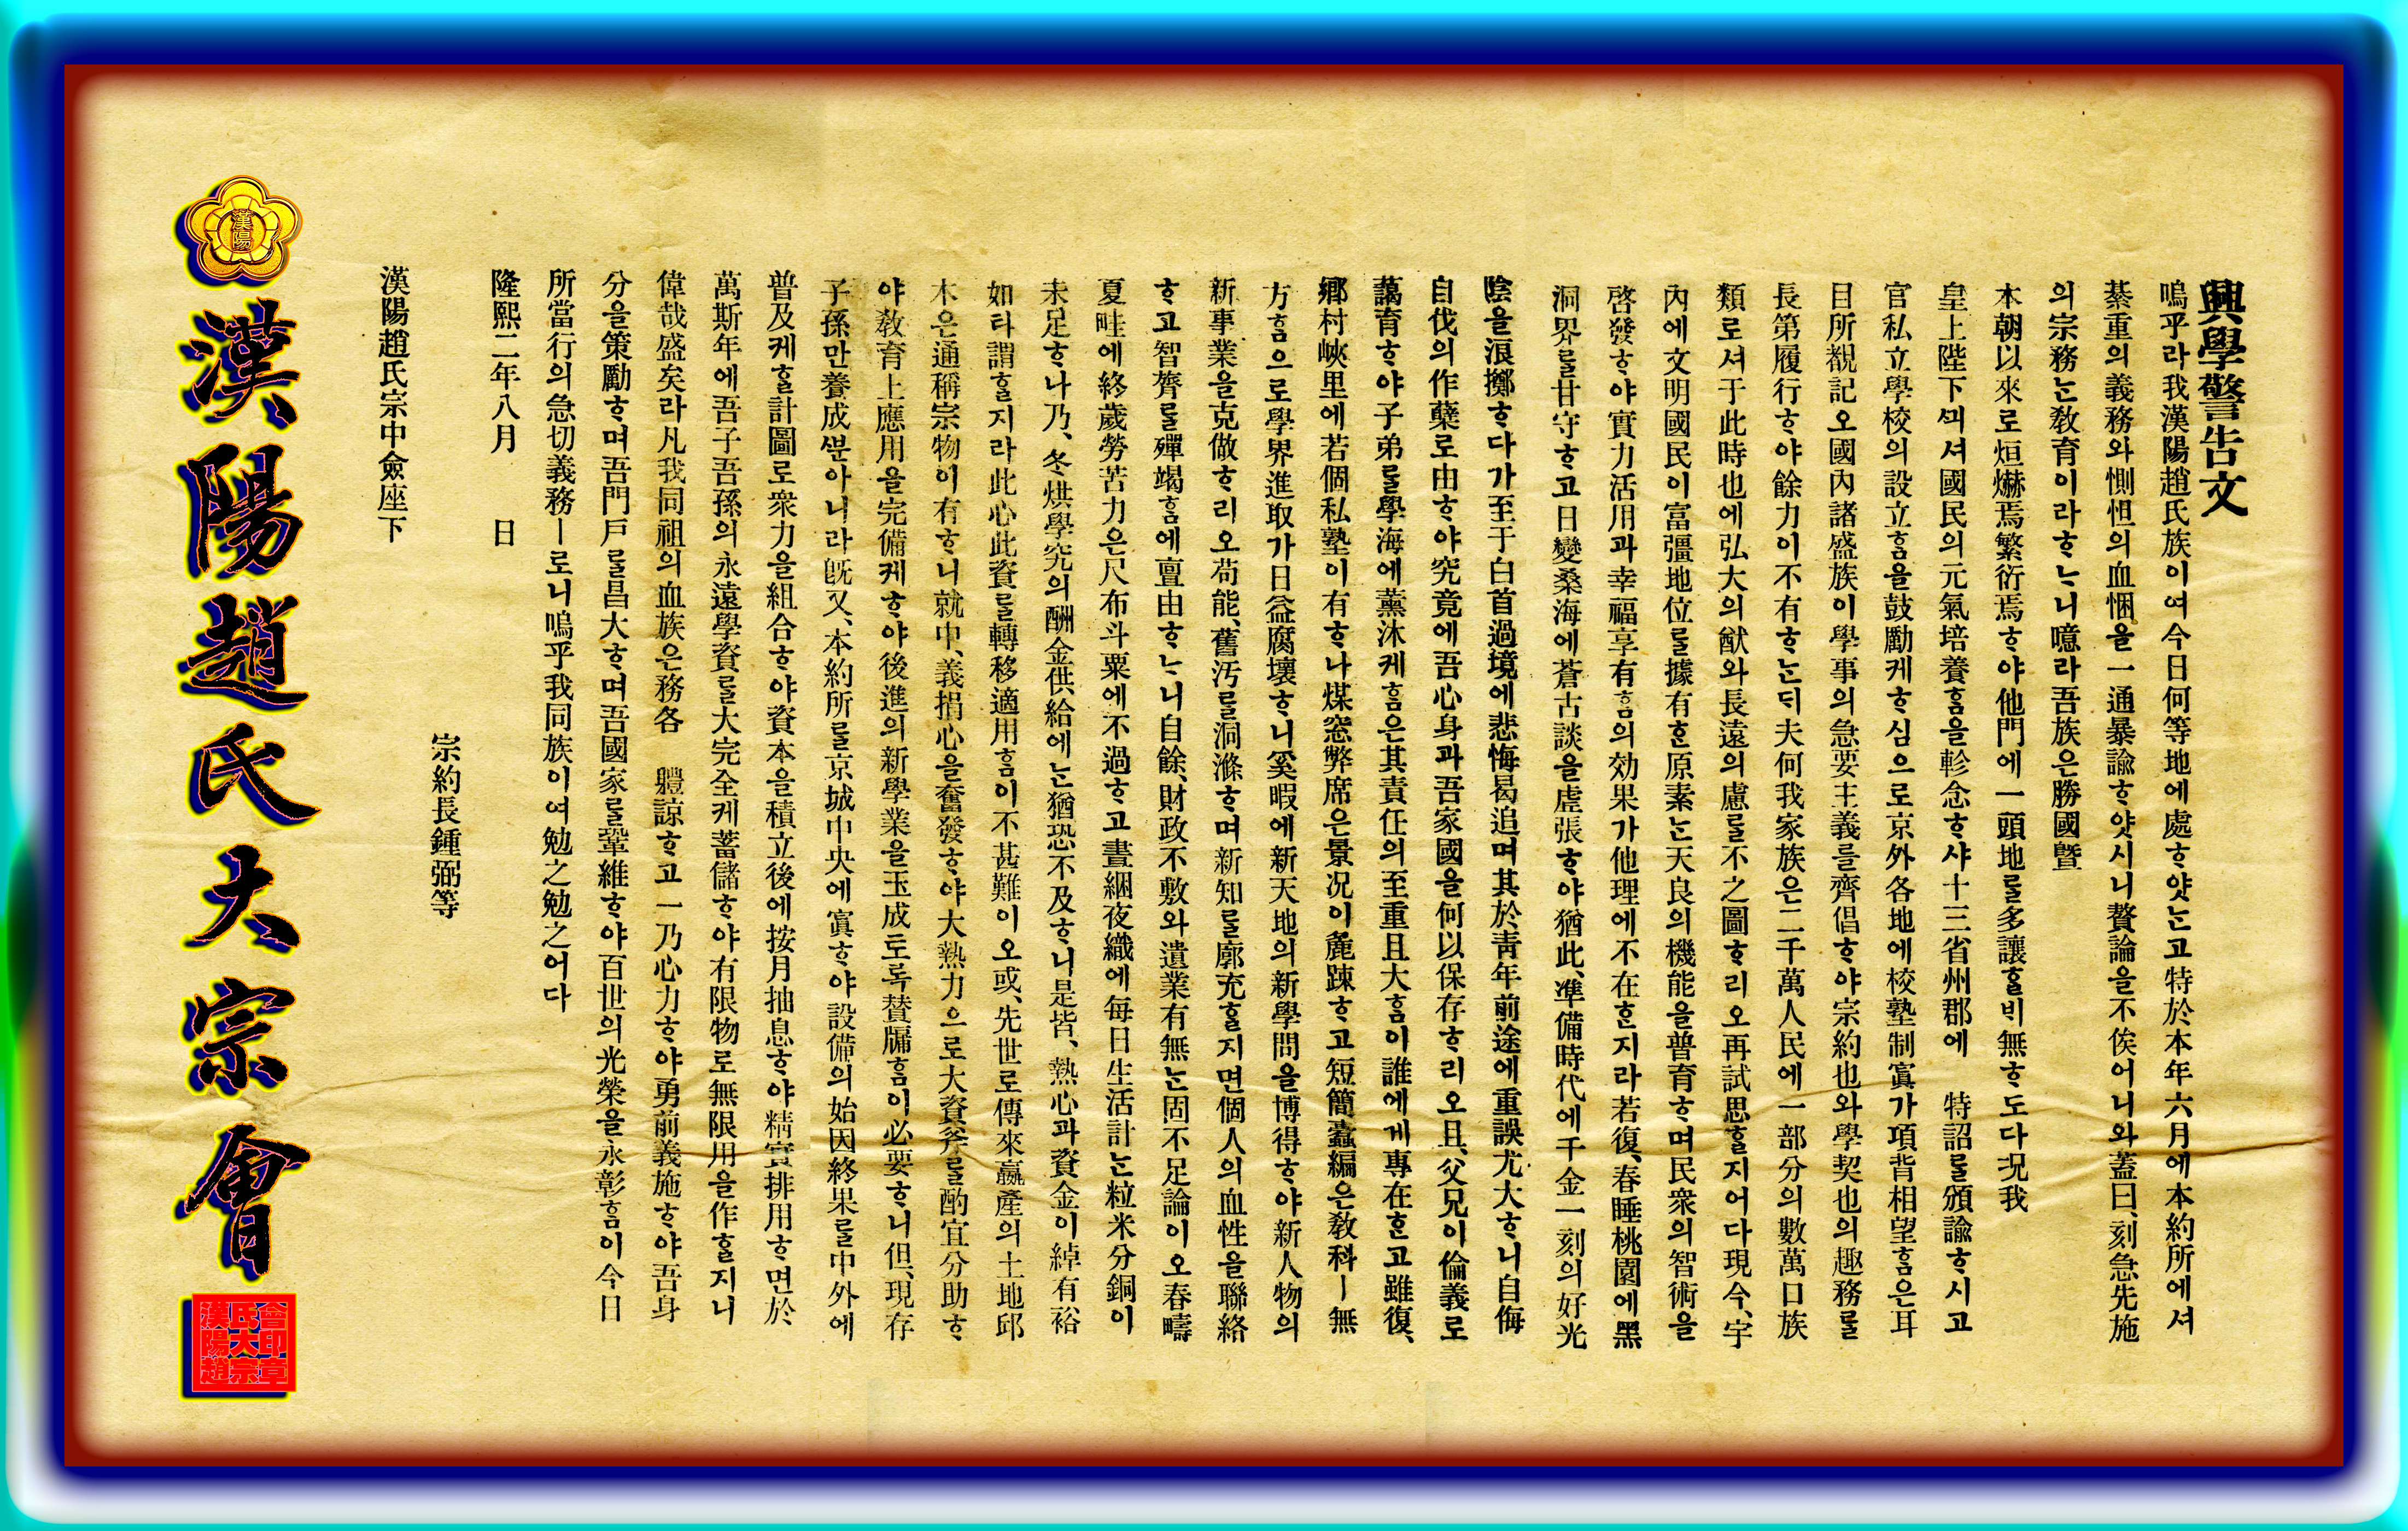 興學警告文
嗚乎라我漢陽趙氏族이여今日何等地에處ᄒᆞ얏ᄂᆞᆫ고特於本年六月에本約所에셔
綦重의義務와惻怛의血悃을一通暴諭ᄒᆞ얏시니贅論을不俟어니와蓋曰、刻急先施
의宗務ᄂᆞᆫ敎育이라ᄒᆞᄂᆞ니噫라吾族은勝國曁
本朝以來로烜爀焉繁衍焉ᄒᆞ야他門에一頭地를多讓ᄒᆞᆯ비無ᄒᆞ도다况我
皇上陛下ᄭᅴ셔國民의元氣培養ᄒᆞᆷ을軫念ᄒᆞ샤十三省州郡에 特詔를頒諭ᄒᆞ시고
官私立學校의設立ᄒᆞᆷ을鼓勵케ᄒᆞ심으로京外各地에校塾制寘가項背相望ᄒᆞᆷ은耳
目所覩記오國內諸盛族이學事의急要主義를齊倡ᄒᆞ야宗約也와學契也의趣務를
長第履行ᄒᆞ야餘力이不有ᄒᆞᄂᆞᆫ디夫何我家族은二千萬人民에一部分의數萬口族
類로셔于此時也에弘大의猷와長遠의慮를不之圖ᄒᆞ리오再試思ᄒᆞᆯ지어다現今、宇
內에文明國民이富彊地位를據有ᄒᆞᆫ原素ᄂᆞᆫ天良의機能을普育ᄒᆞ며民衆의智術을
啓發ᄒᆞ야實力活用과幸福享有ᄒᆞᆷ의効果가他理에不在ᄒᆞᆫ지라若復、春睡桃園에黑
洞界를甘守ᄒᆞ고日變桑海에蒼古談을虛張ᄒᆞ야猶此、準備時代에千金一刻의好光
陰을浪擲ᄒᆞ다가至于白首過境에悲悔曷追며其於靑年前途에重誤尤大ᄒᆞ니自侮
自伐의作孽로由ᄒᆞ야究竟에吾心身과吾家國을何以保存ᄒᆞ리오且、父兄이倫義로
藹育ᄒᆞ야子弟를學海에薰沐케ᄒᆞᆷ은其責任의至重且大ᄒᆞᆷ이誰에게專在ᄒᆞᆫ고雖復、
鄕村峽里에若個私塾이有ᄒᆞ나煤窓弊席은景况이麁踈ᄒᆞ고短簡蠹編은敎科ㅣ無
方ᄒᆞᆷ으로學界進取가日益腐壞ᄒᆞ니奚暇에新天地의新學問을博得ᄒᆞ야新人物의
新事業을克做ᄒᆞ리오苟能、舊汚를洞滌ᄒᆞ며新知를廓充ᄒᆞᆯ지면個人의血性을聯絡
ᄒᆞ고智膂를殫竭ᄒᆞᆷ에亶由ᄒᆞᄂᆞ니自餘、財政不敷와遺業有無ᄂᆞᆫ固不足論이오春疇
夏畦에終歲勞苦力은尺布斗粟에不過ᄒᆞ고晝綑夜織에每日生活計ᄂᆞᆫ粒米分銅이
未足ᄒᆞ나乃、冬烘學究의酬金供給에ᄂᆞᆫ猶恐不及ᄒᆞ니是皆、熱心과資金이綽有裕
如타謂ᄒᆞᆯ지라此心此資를轉移適用ᄒᆞᆷ이不甚難이오或、先世로傳來贏產의土地邱
木은通稱宗物이有ᄒᆞ니就中、義捐心을奮發ᄒᆞ야大熱力으로大資斧를酌宜分助ᄒᆞ
야敎育上應用을完備케ᄒᆞ야後進의新學業을玉成토록賛牖ᄒᆞᆷ이必要ᄒᆞ니但、現存
子孫만養成ᄲᅮᆫ아니라旣又、本約所를京城中央에寘ᄒᆞ야設備의始因終果를中外에
普及케ᄒᆞᆯ計圖로衆力을組合ᄒᆞ야資本을積立後에按月抽息ᄒᆞ야精實排用ᄒᆞ면於
萬斯年에吾子吾孫의永遠學資를大完全케蓄儲ᄒᆞ야有限物로無限用을作ᄒᆞᆯ지니
偉哉盛矣라凡我同祖의血族은務各 軆諒ᄒᆞ고一乃心力ᄒᆞ야勇前義施ᄒᆞ야吾身
分을策勵ᄒᆞ며吾門戶를昌大ᄒᆞ며吾國家를鞏維ᄒᆞ야百世의光榮을永彰ᄒᆞᆷ이今日
所當行의急切義務ㅣ로니嗚乎我同族이여勉之勉之어다
隆熙二年八月 日
宗約長鍾弼等
漢陽趙氏宗中僉座下
漢陽
漢陽趙氏大宗會
會印章
氏大宗
漢陽趙